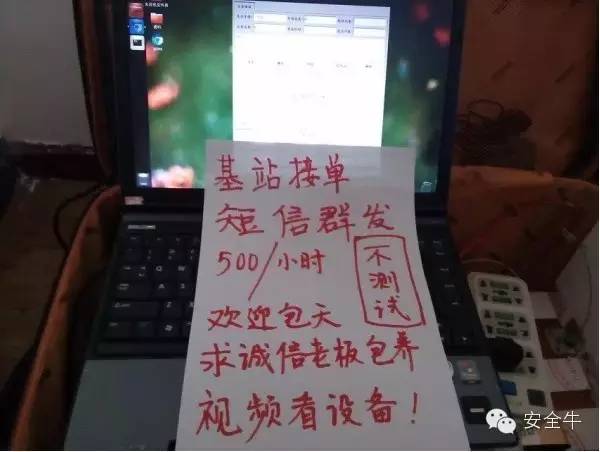 基站接单
短信群发
500/小时
不测试
欢迎包天
求诚信老板包养
视频看设备！
安全牛